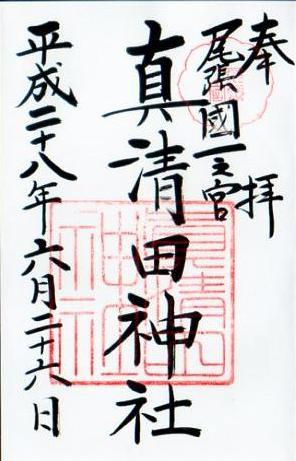 奉拝
尾張國一之宮
真清田神社
平成二十八年六月二十六日